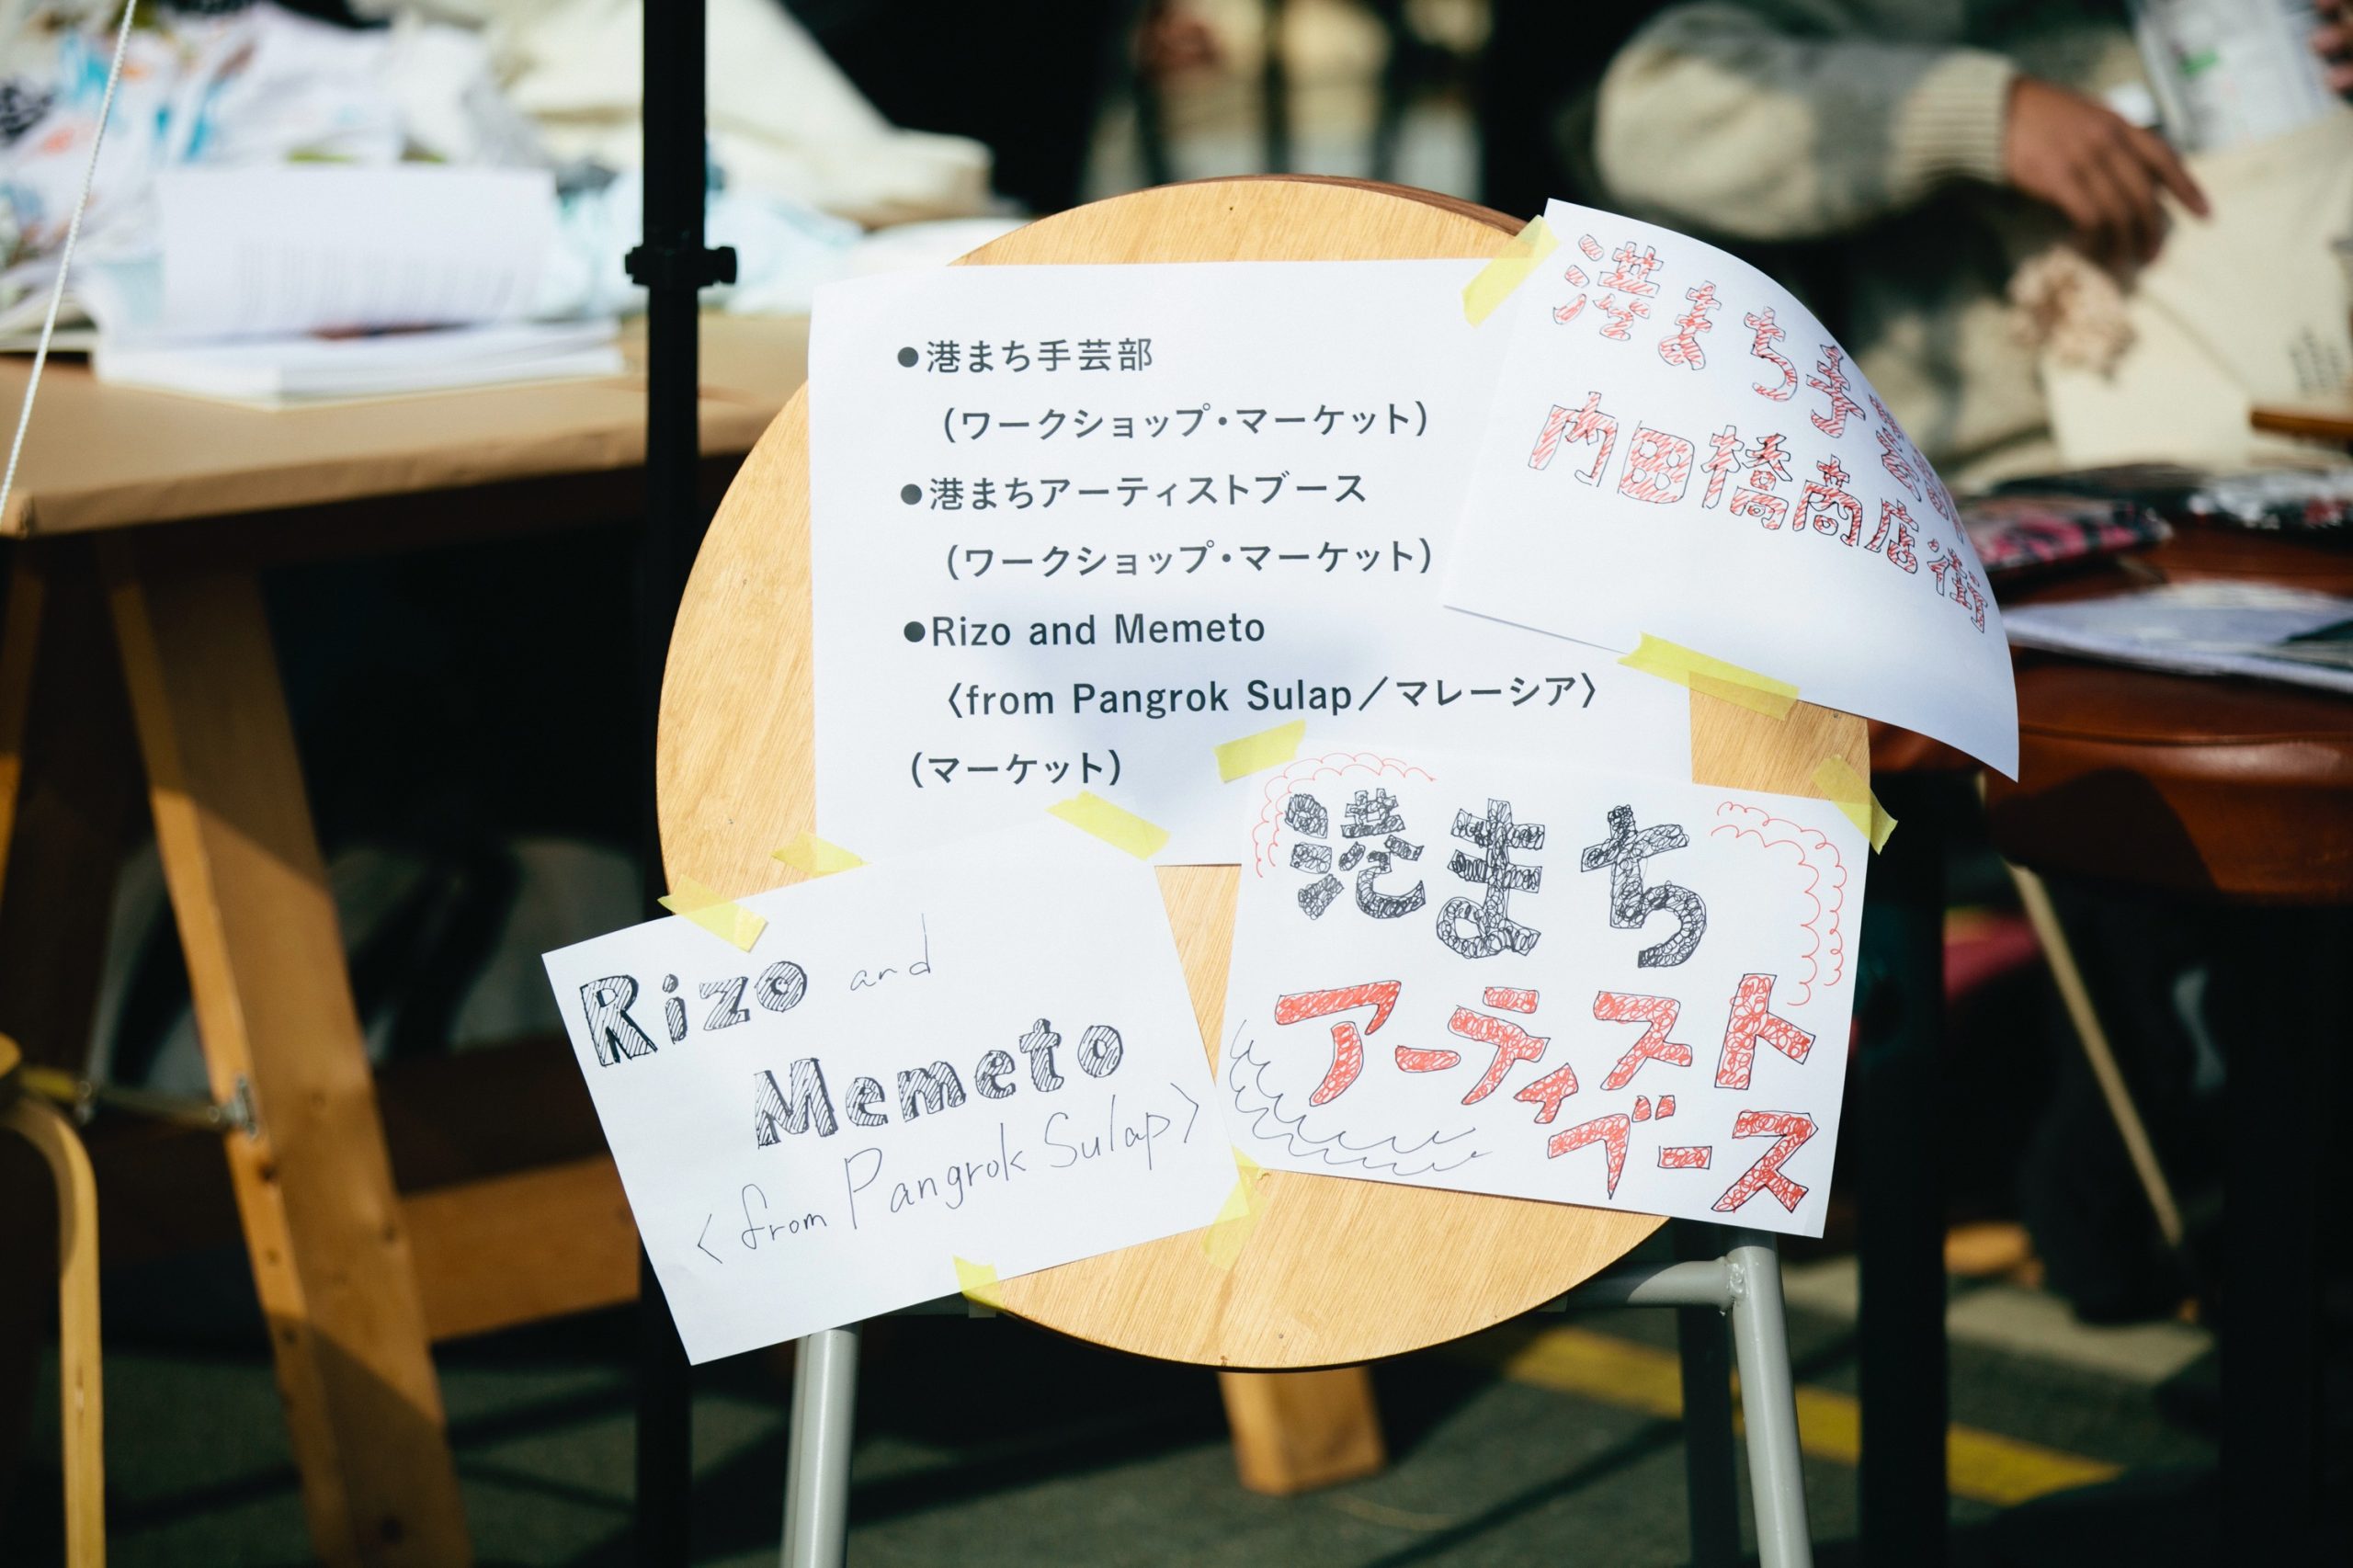 ●港まち手芸部
(ワークショップ・マーケット)
●港まちアーティストブース
(ワークショップ・マーケット)
●Rizo and Memeto
〈from Pangrok Sulap／マレーシア〉
(マーケット)
港まち手芸部
内田橋商店街
Rizo and
Memeto
〈from Pangrok Sulap〉
港まち
アーティスト
ブース